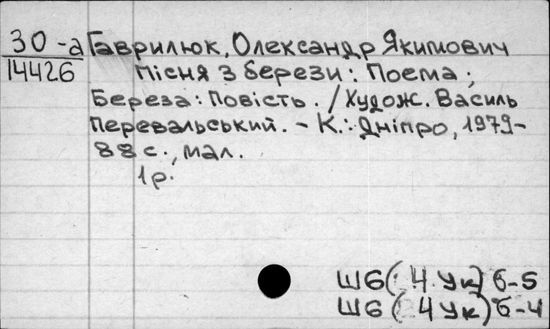 30-а Гаврилюк, Олександр Якимович
14426 Пісня з Берези: Поема;
Береза: Повість. / Худож. Василь
Перевальський. - К.: Дніпро, 1979-
88 с., мал.
1р.
Ш6(4 Ук) 6-5
Ш6(4 Ук) 6-4